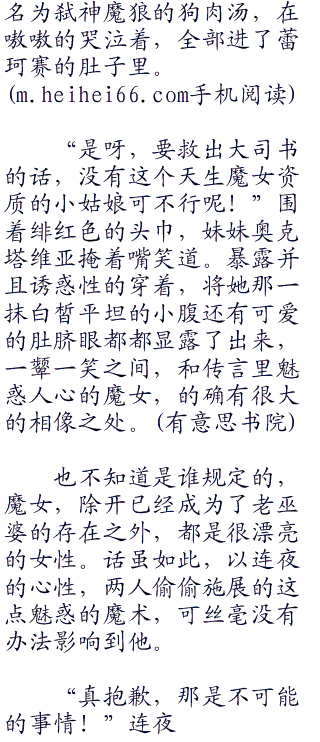 名为弑神魔狼的狗肉汤，在
嗷嗷的哭泣着，全部进了蕾
珂赛的肚子里。
(m.heihei66.com手机阅读)
“是呀，要救出大司书
的话，没有这个天生魔女资
质的小姑娘可不行呢！”围
着绯红色的头巾，妹妹奥克
塔维亚掩着嘴笑道。暴露并
且诱惑性的穿着，将她那一
抹白皙平坦的小腹还有可爱
的肚脐眼都都显露了出来，
一颦一笑之间，和传言里魅
惑人心的魔女，的确有很大
的相像之处。(有意思书院)
也不知道是谁规定的，
魔女，除开已经成为了老巫
婆的存在之外，都是很漂亮
的女性。话虽如此，以连夜
的心性，两人偷偷施展的这
点魅惑的魔术，可丝毫没有
办法影响到他。
“真抱歉，那是不可能
的事情！”连夜